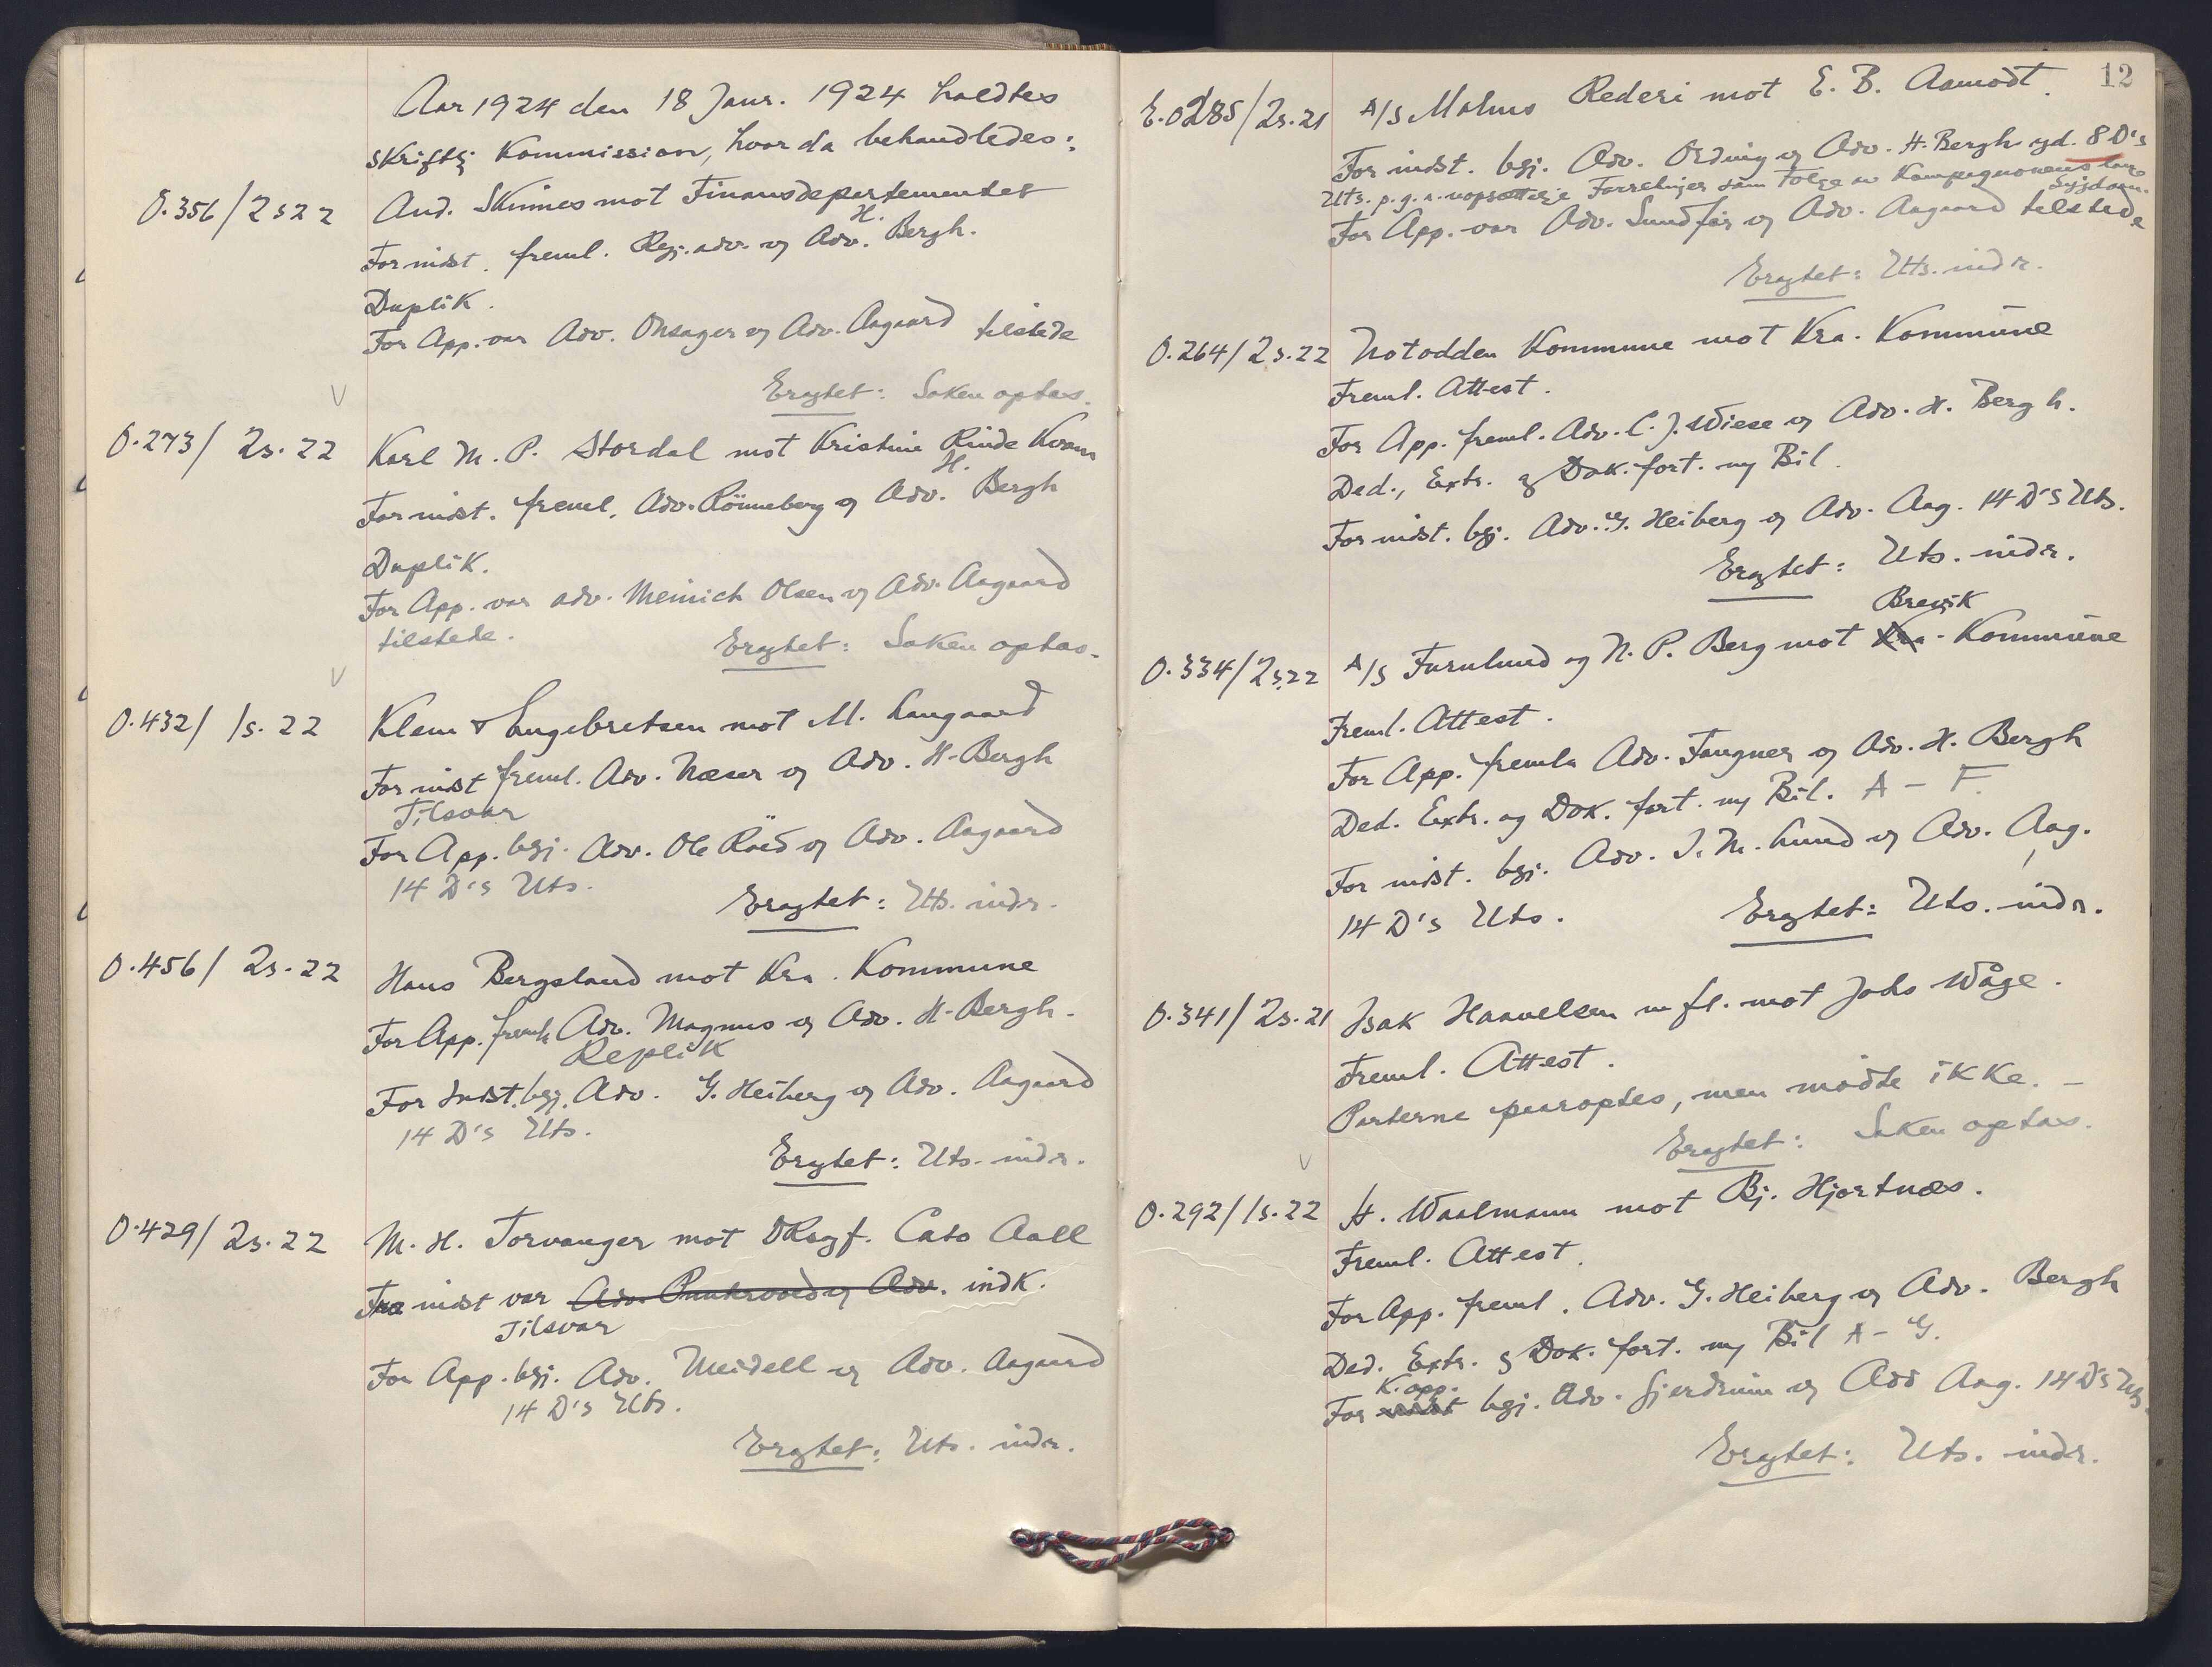 Aar 1924 den 18 Janr. 1924 holdtes
skriftlj Kommission, hvor da behandledes:
O.356/2s22 And. Skinnes mot Finansdepartementet
For indst. freml. Rgj.adv. og Adv. H. Bergh.
Duplik.
For App. var Adv. Onsager og Adv. Aagaard tilstede
Eragtet: Saken optas.
V
O.273/2s.22 Karl M. P. Stordal mot Kristine Rinde Kvam
For indst. freml. Adv. Rönneberg og Adv. H. Bergh
Duplik.
For App. var adv. Meinich Olsen og Adv. Aagaard
tilstede. Eragtet: Saken optas.
V
O.432/1s.22 Klem & Engebretsen mot M. Langaard
For indst freml. Adv. Næser og Adv. H. Bergh
Tilsvar
For App. bgj. Adv. Ole Röed og Adv. Aagaard
14 D's Uts.
Eragtet: Uts. indr.
O.456/2s.22 Hans Bergsland mot Kra. Kommune
For App. freml. Adv. Magnus og Adv. H. Bergh.
Replik
For Indst. bgj. Adv. G. Heiberg og Adv. Aagaard
14 D's Uts.
Eragtet: Uts. indr.
O.429/2s.22 M. H. Torvanger mot ORsagf. Cato Aall
indst var Adv. og Adv. indk.
Tilsvar
For App. bgj. Adv. Meidell og Adv. Aagaard
14 D's Uts.
Eragtet: Uts. indr.
12
E.O285/2s.21 A/S Malms Rederi mot E. B. Aamodt.
For indst. bgj. Adv. Ording og Adv. H. Bergh ygd. 8 D's
Uts. p.g.a. uopsættelje Forretninjer som Følge av Kompagnonens lange
Sygdom.
For App. var Adv. Sundför og Adv. Aagaard tilstede
Eragtet: Uts. indr.
O.264/2s.22 Notodden Kommune mot Kra. Kommune
Freml. Attest.
For App. freml. Adv. C. J. Wiese og Adv. H. Bergh.
Ded., Extr. og Dok.fort. m Bil.
For indst. bgj. Adv. G. Heiberg og Adv. Aag. 14 D's Uts.
Eragtet: Uts. indr.
Brevik
O.334/2s.22 A/S Furulund og N. P. Berg mot Kra. Kommune
Freml. Attest.
For App. fremla Adv. Fougner og Adv. H. Bergh
Ded. Extr. og Dok. fort. m Bil. A – F.
For indst. bgj. Adv. I. M. Lund og Adv. Aag.
14 D's Uts. Eragtet: Uts. indr.
O.341/2s.21 Isak Haavelsen m fl. mot Johs Wåge.
Freml. Attest.
Parterne paaroptes, men mödte ikke. –
Eragtet: Saken optas.
V
O.292/1s.22 H. Waalmann mot Bj. Hjortnæs.
Freml. Attest.
For App. freml. Adv. G. Heiberg og Adv. Bergh
Ded. Extr. og Dok. fort. m Bil A – G.
K.app.
For indst bgj. Adv. Gjerdrum og Adv Aag. 14 D's Uts.
Eragtet: Uts. indr.